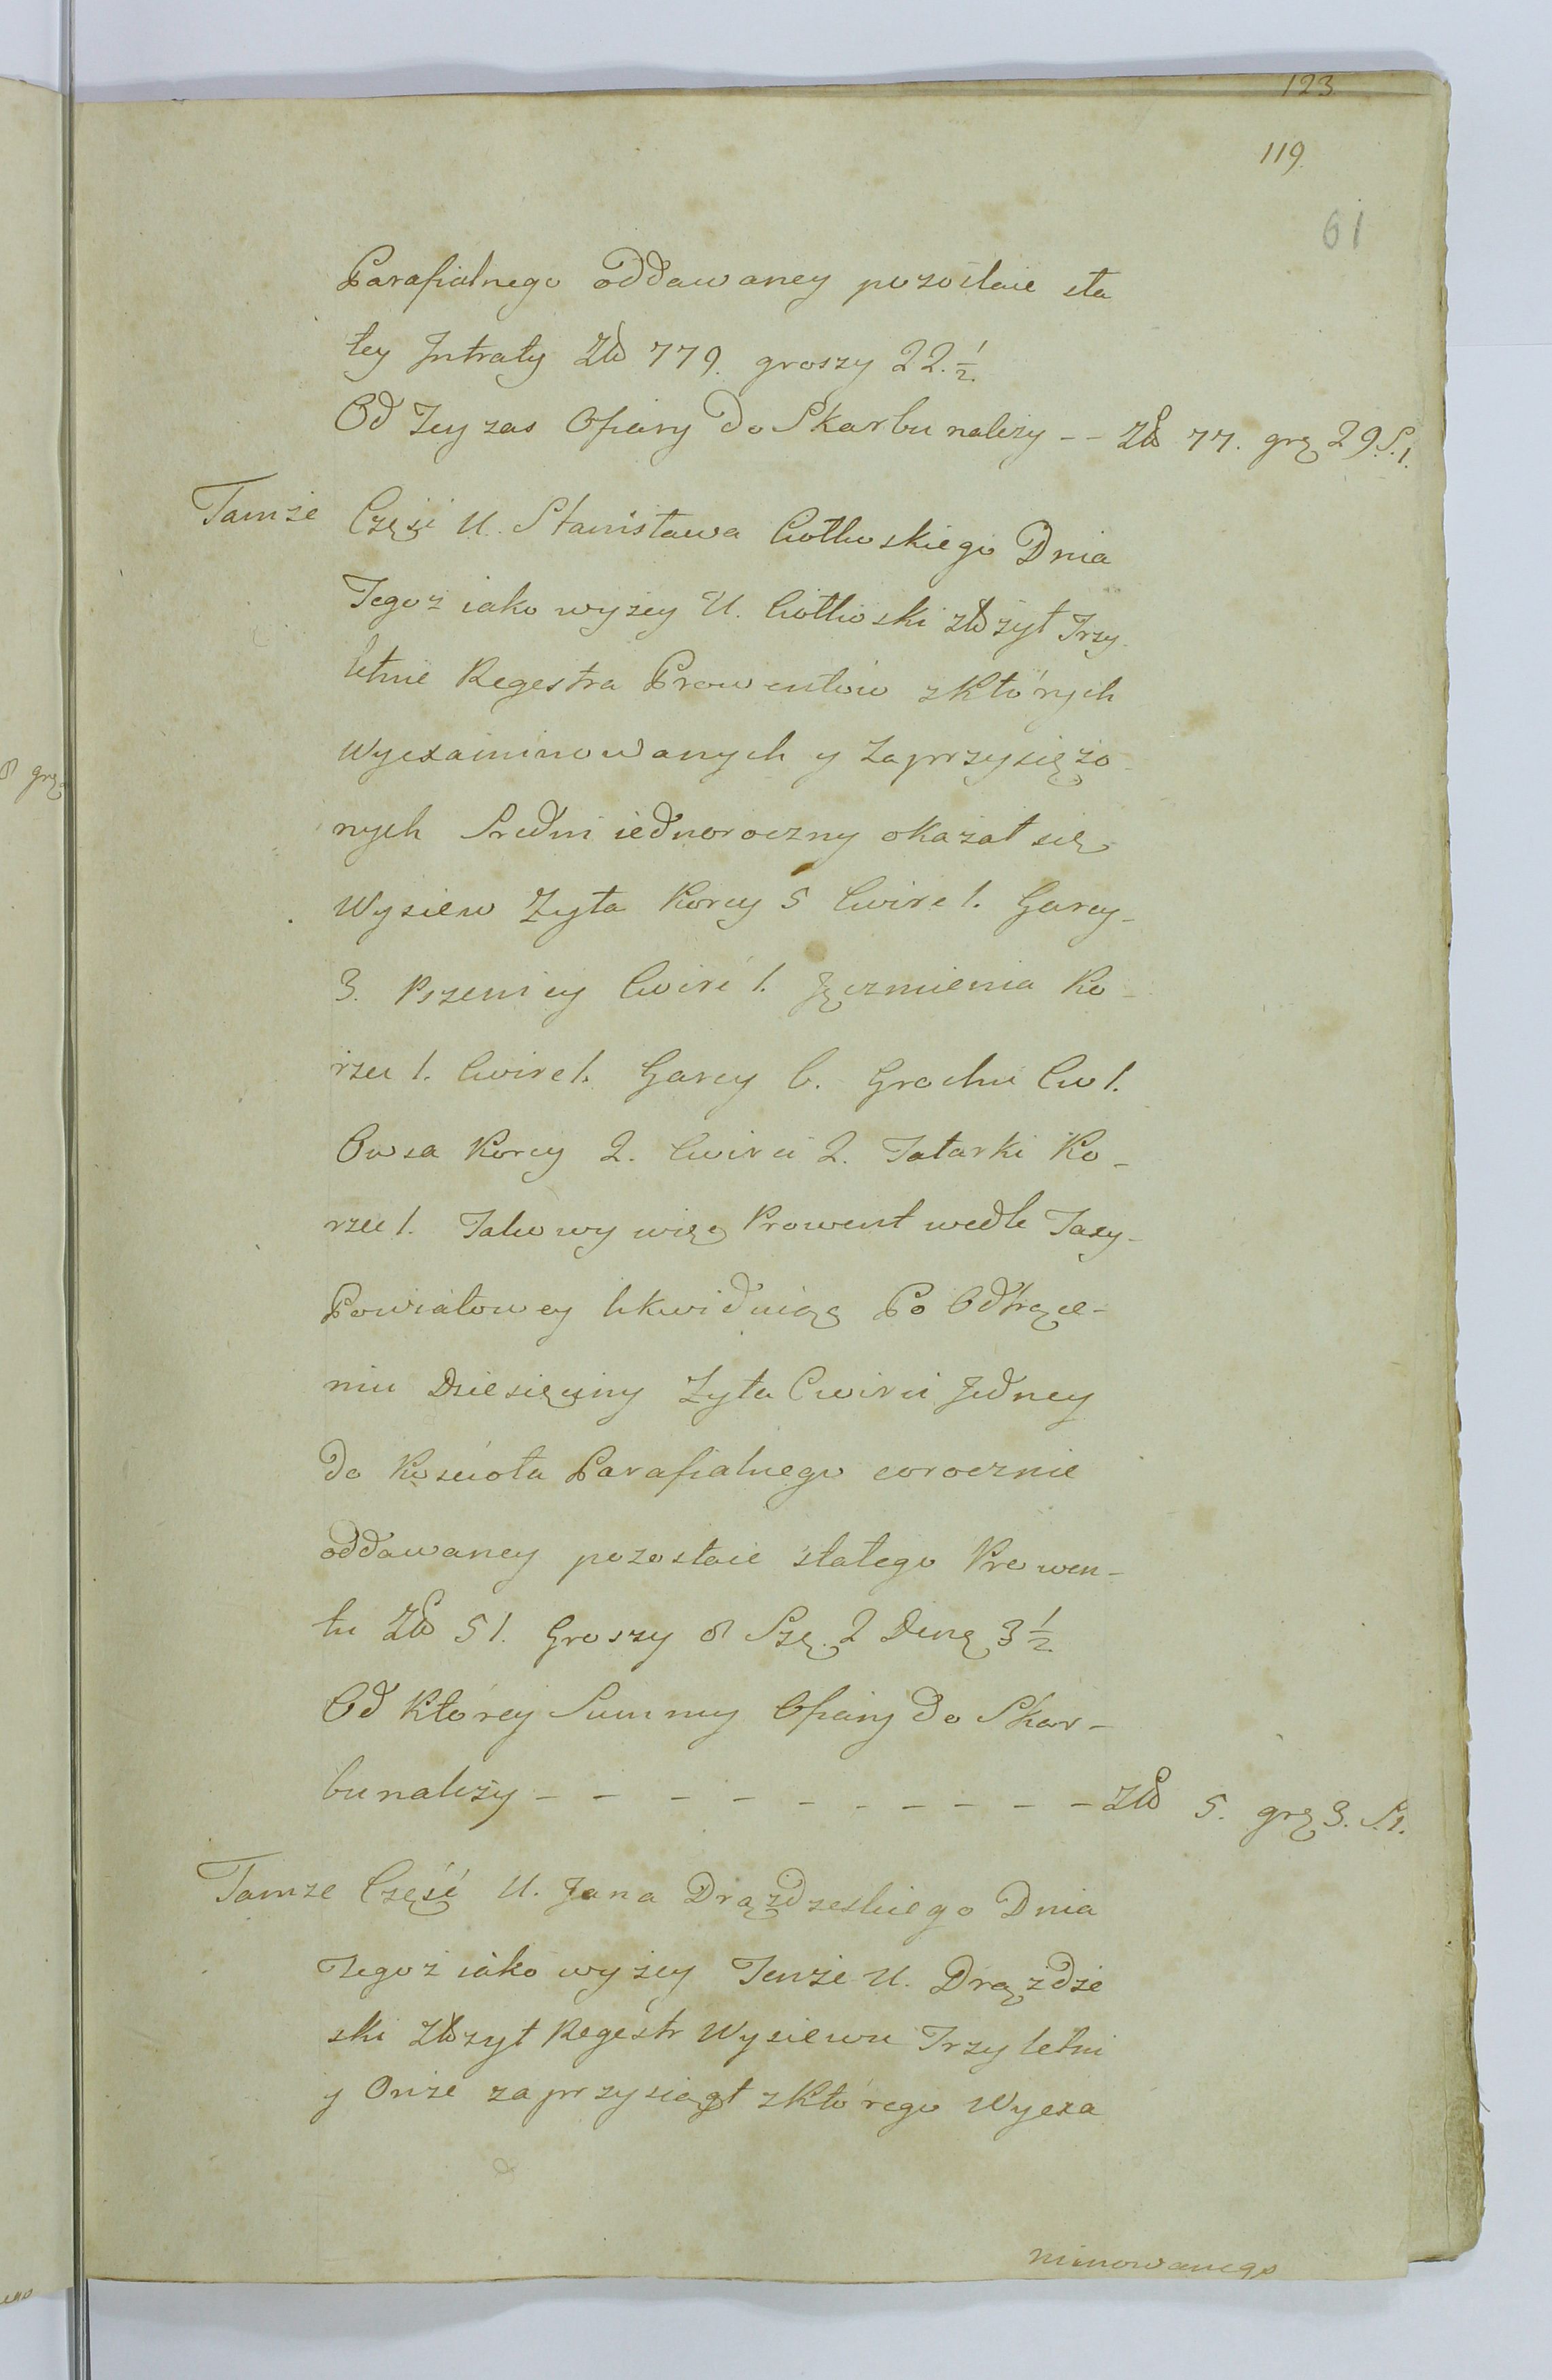 123
119.
61
Parafialnego oddawaney pozostaie sta
łey Jntraty Zło 779. groszy 22. 1/2.
Od Tey zas Ofiary do Skarbu nalezy - - Zło 77. grę 29. S. 1.
Tamże Częsć U. Stanisława Ciołkoskiego Dnia
Tegoż iako wyżey U. Ciołkoski złożył Trzy
letnie Regestra Prowentow z których
Wyexaminowanych y zaprzysiężo-
nych Sredni iednoroczny okazał się
Wysiew Zyta Korcy 5 Cwierc 1. Garcy-
3. Pszenicy Cwierć 1. Jęczmienia Ko-
rzec 1. Cwierc 1. Garcy 6. Grochu Cw 1.
Owsa Korcy 2. Cwierci 2. Tatarki Ko-
rzec 1. Takowy więc Prowent wedle Taxy-
Powiatowey likwiduiąc Po Odtrące-
niu Dziesięciny Zyta Cwierci Jedney
do Koscioła Parafialnego corocznie
oddawaney pozostaie stałego Prowen-
tu Zło 51. Groszy 8 Szę. 2 Denę 3 1/2
Od Którey Summy Ofiary do Skar-
bu należy - - - - - - - - - - Zło 5. grę 3. S. 1.
Tamze Część U. Jana Drążdzeskiego Dnia
Tegoż iako wyżey Tenże U. Drążdże
ski Złozył Regestr Wysiewu Trzyletni
y Onże zaprzysiągł z którego Wyexa
minowanego
8 grę